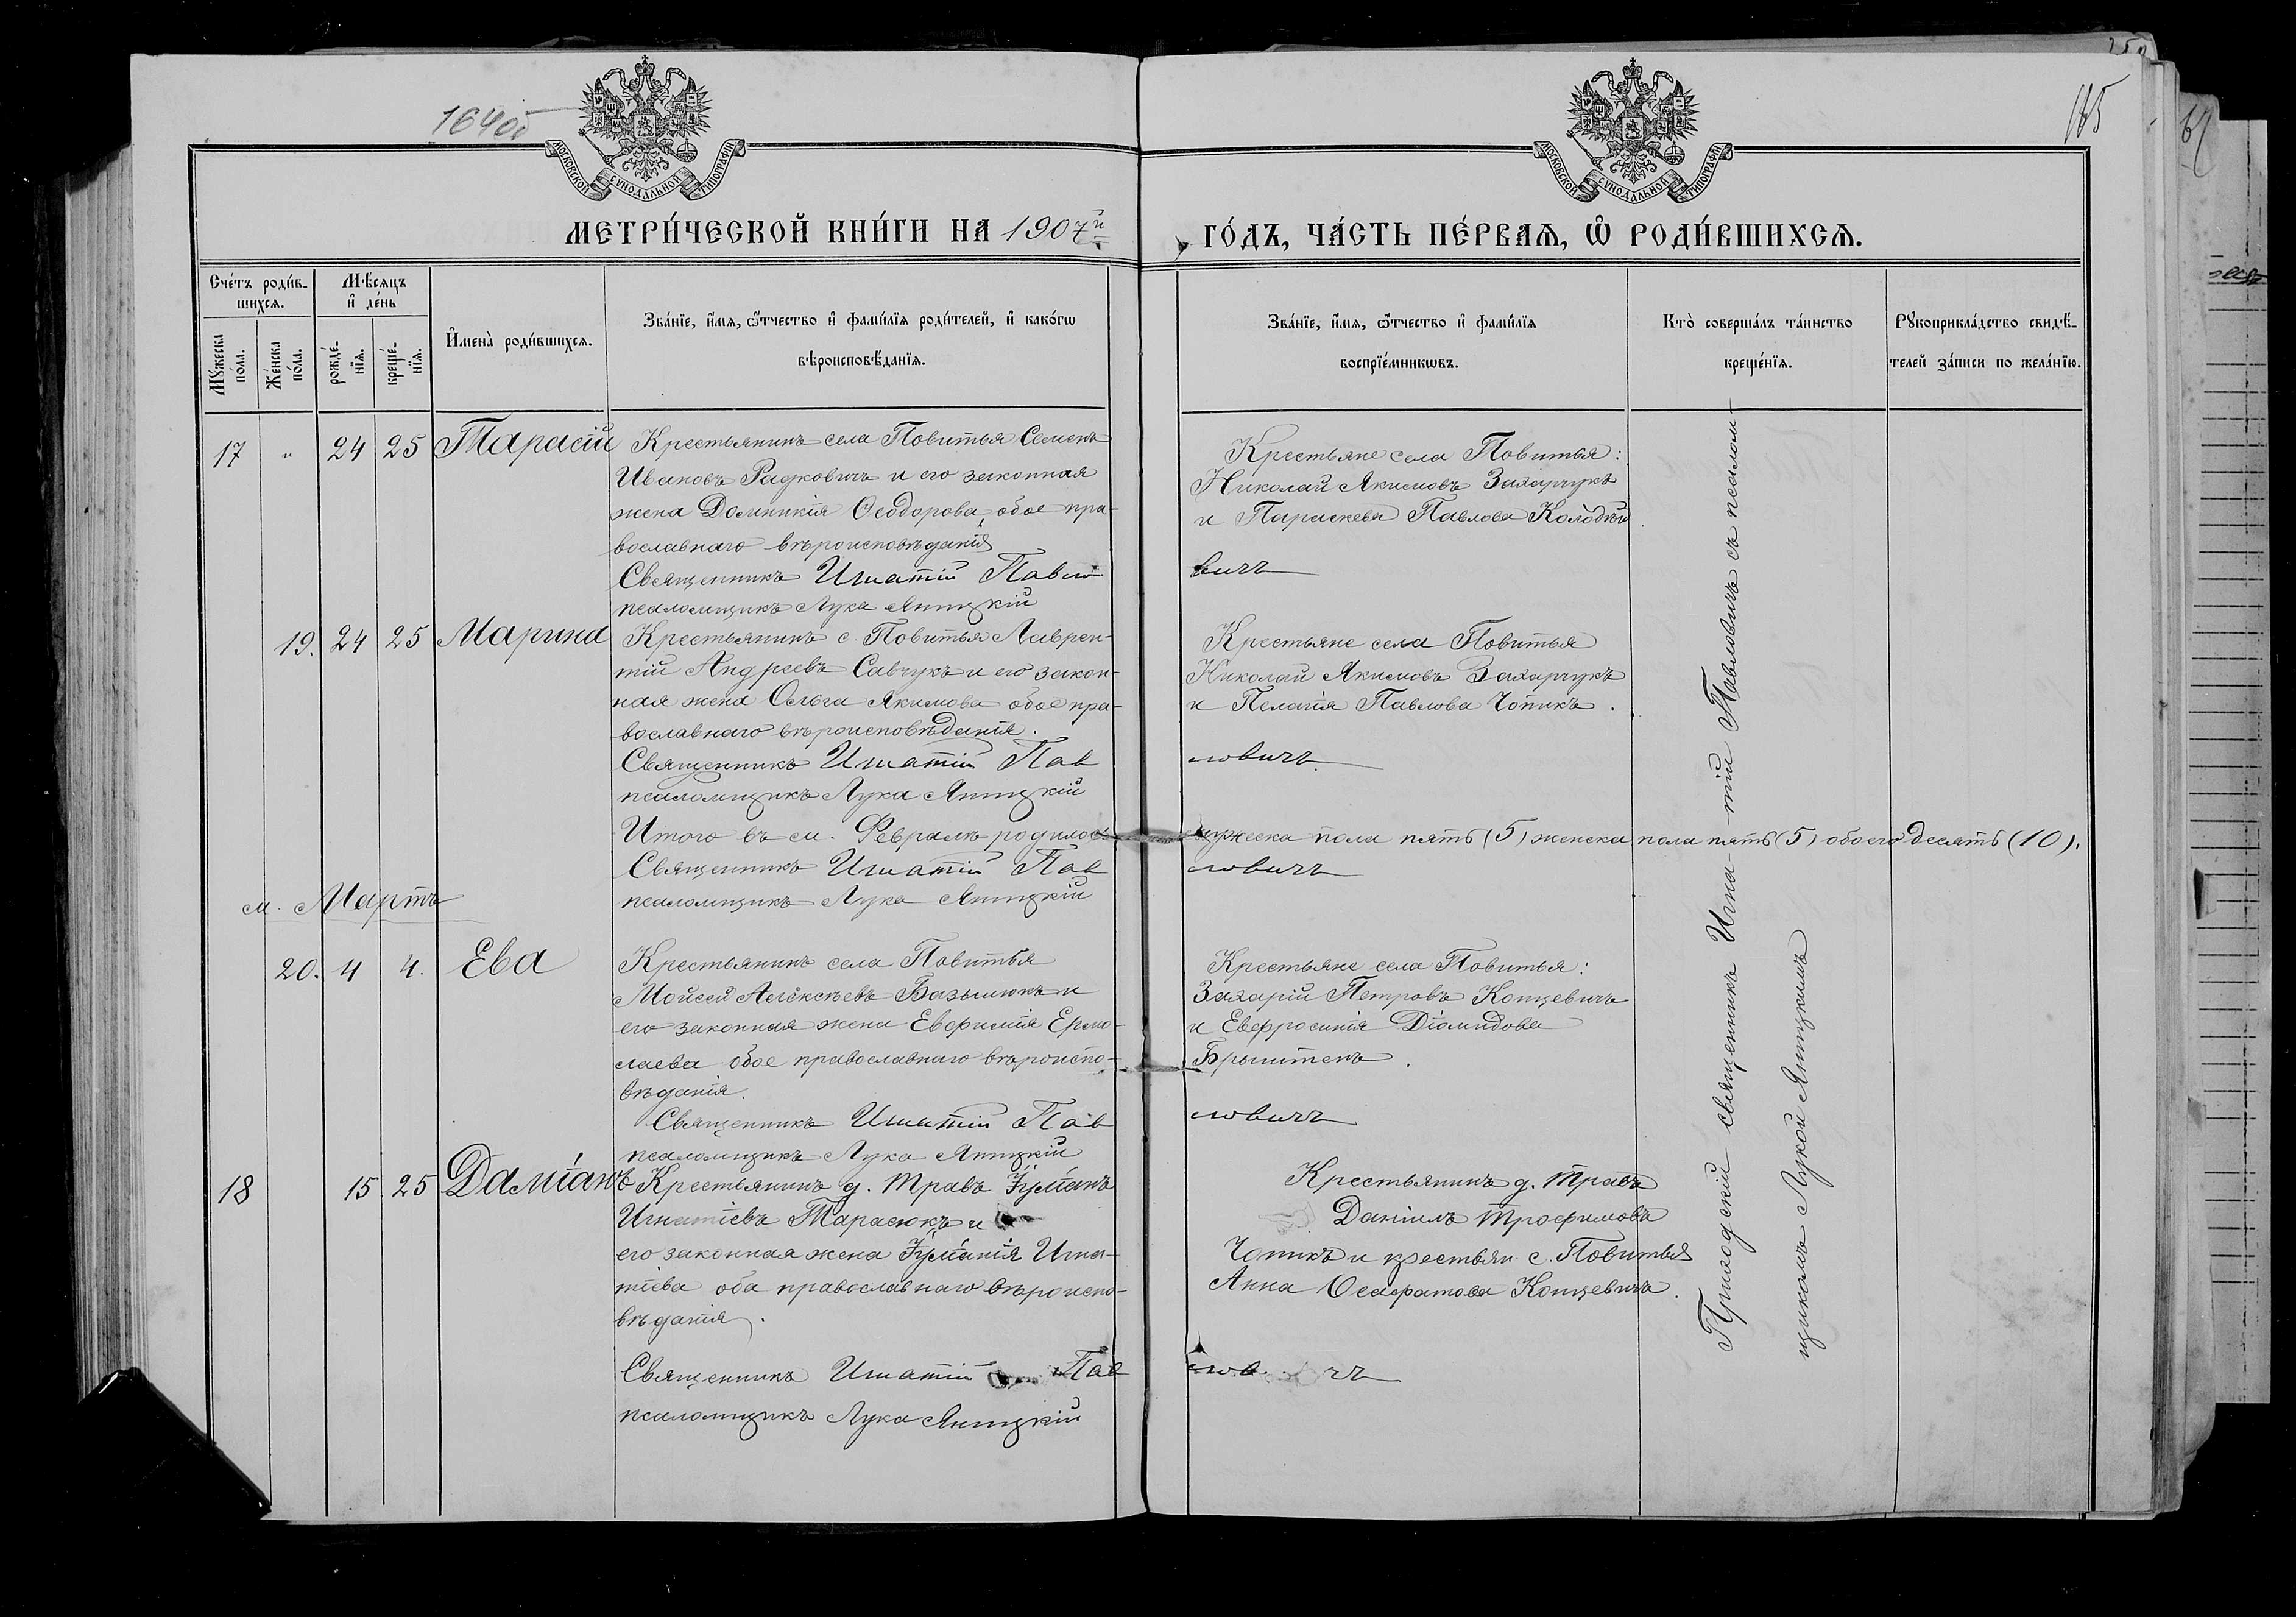 164об
165
МОСКОВСКОЙ СѴНОДАЛЬНОЙ ТИПОГРАФІИ
МОСКОВСКОЙ СѴНОДАЛЬНОЙ ТИПОГРАФІИ
МЕТРИ́ЧЕСКОЙ КНИ́ГИ НА 1907й
ГО́ДЪ, ЧА́СТЬ ПЕ́РВАѦ, Ѽ РОДИ́ВШИХСѦ.
Сче́тъ роди́в-
шихсѧ.
Мѣ́сѧцъ
и҆ де́нь
Мꙋ́жеска
по́ла.
Же́нска
по́ла.
рожде́-
нїѧ.
креще́-
нїѧ.
И҆мена̀ роди́вшихсѧ.
Зва́нїе, и҆́мѧ, ѻ҆́тчество и҆ фами́лїѧ роди́телей, и҆ како́гѡ
вѣроисповѣ́данїѧ.
Зва́нїе, и҆́мѧ, ѻ҆́тчество и҆ фами́лїѧ
воспрїе́мникѡвъ.
Кто̀ соверша́лъ та́инство
креще́нїѧ.
Рꙋкоприкла́дство свидѣ́-
телей за́писи по жела́нїю.
17 " 24 25 Тарасій
Крестьянинъ села Повитья Семенъ
Ивановъ Радковичъ и его законная
жена Домникія Ѳеодорова, обое пра-
вославнаго вѣроисповѣданія
Священникъ Игнатій Павло
вичъ
псаломщикъ Лука Яницкій
Крестьяне села Повитья:
Николай Якимовъ Захарчукъ
и Параскева Павлова
19. 24 25 Марина
Крестьянинъ с. Повитья Лаврен-
тій Андреевъ Савчукъ и его закон-
ная жена Ольга Якимова обое пра-
вославнаго вѣроисповѣданія.
Священникъ Игнатій Пав
ловичъ
псаломщикъ Лука Яницкій
Крестьяне села Повитья
Николай Якимовъ Захарчукъ
и Пелагія Павлова Чопикъ.
Итого въ м. Февралѣ родилось мужеска пола пять (5) женска пола пять (5) обоего десять (10).
Священникъ Игнатій Пав
ловичъ
псаломщикъ Лука Яницкій
м. Мартъ
20. 4 4. Ева
Крестьянинъ села Повитья
Моисей Алексѣевъ Базылюкъ и
его законная жена Евфимія Ермо-
лаева обое православнаго вѣроиспо-
вѣданія.
Священникъ Игнатій Пав
ловичъ
псаломщикъ Лука Яницкій
Крестьяне села Повитья:
Захарій Петровъ Концевичъ
и Евфросинія Діомидова
18 15 25 Даміанъ
Крестьянинъ д. Травъ Іуліанъ
Игнатіевъ Тарасюкъ и
его законная жена Іуліанія Игна-
тіева оба православнаго вѣроиспо-
вѣданія.
Священникъ Игнатій Пав
лов чъ
псаломщикъ Лука Яницкій
Крестьянинъ д. Травъ
Даніилъ Трофимовъ
Чопикъ и крестьян. с. Повитья
Анна Концевичъ.
Приходскій священникъ Игна-тій Павловичъ съ псалом-
щикомъ Лукой Яницкимъ